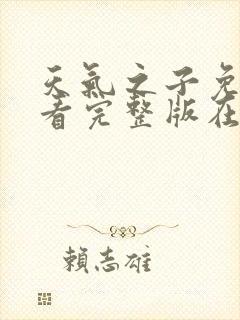 天氣之子免
看完整版在
賴志雄